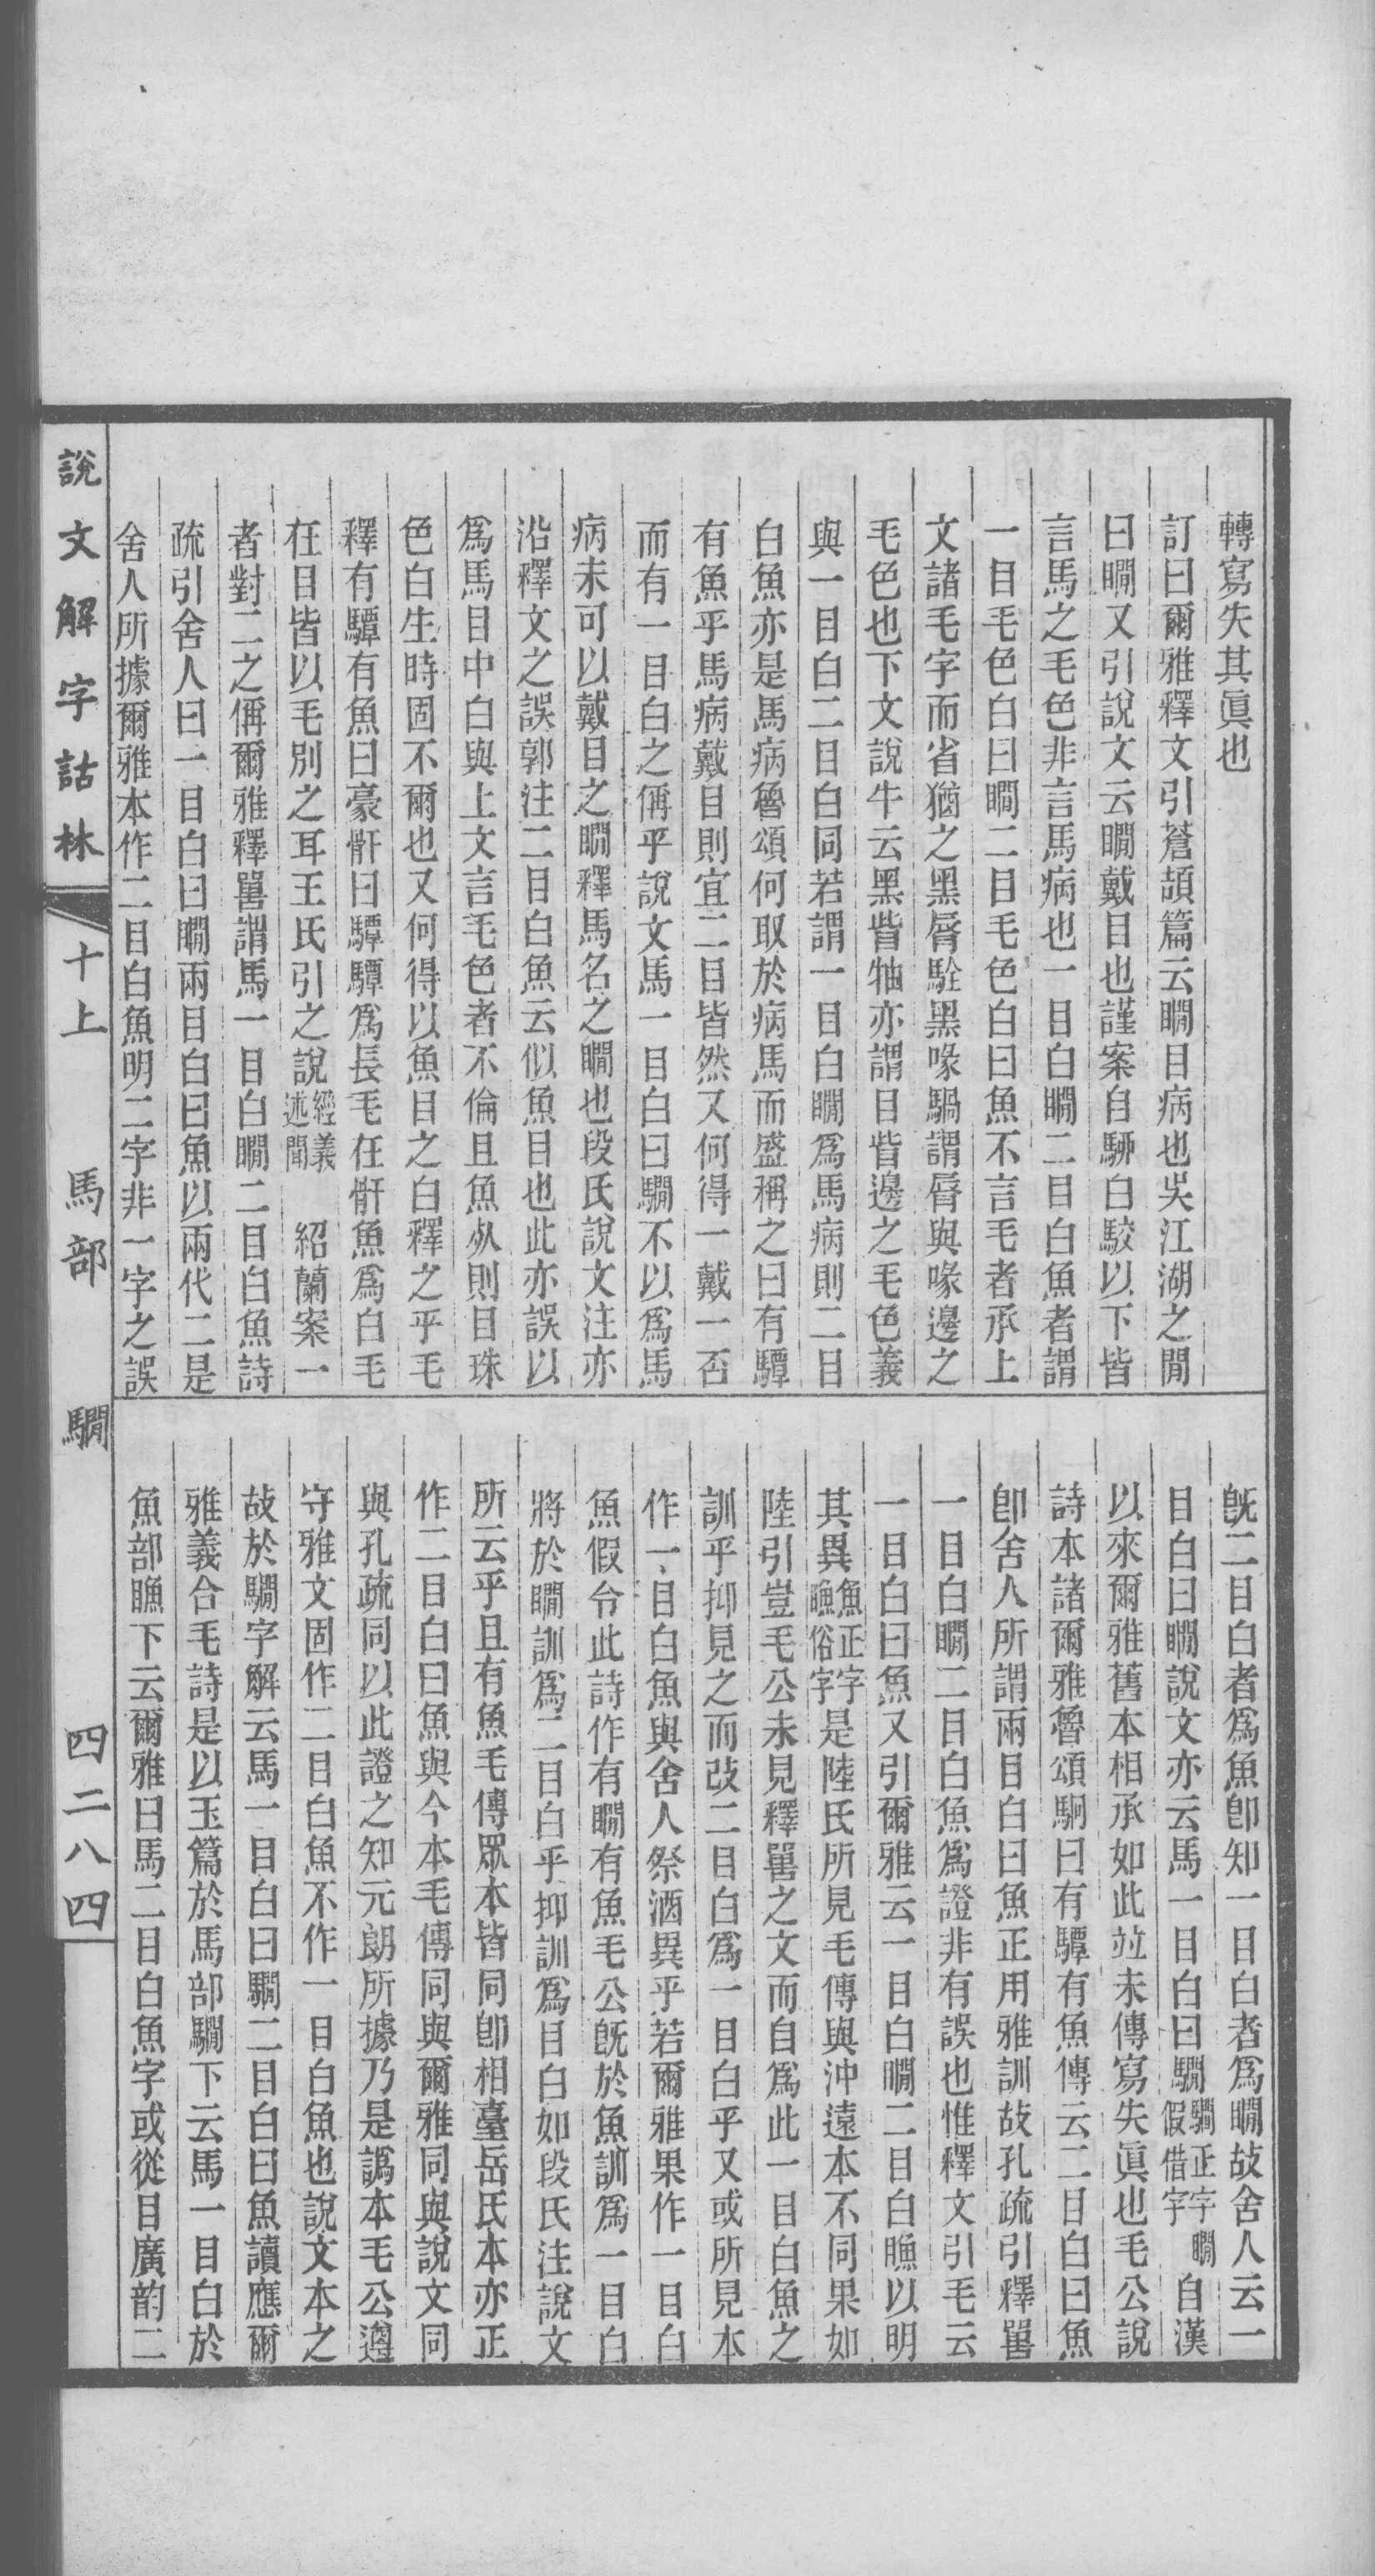 轉寫失其眞也
訂曰爾雅釋文引蒼頡篇云瞷目病也吳江湖之閒
曰瞷又引說文云瞷戴目也謹案自駵白駮以下皆
言馬之毛色非言馬病也一目白瞷二目白魚者謂
一目毛色白曰瞷二目毛色白曰魚不言毛者承上
文諸毛字而省猶之黑脣駩黑喙騧謂脣與喙邊之
毛色也下文說牛云黑眥牰亦謂目眥邊之毛色義
與一目白二目白同若謂一目白瞷爲馬病則二目
白魚亦是馬病魯頌何取於病馬而盛稱之曰有驔
有魚乎馬病戴目則宜二目皆然又何得一戴一否
而有一目白之偁乎說文馬一目白曰騆不以爲馬
病未可以戴目之瞷釋馬名之瞷也段氏說文注亦
沿釋文之誤郭注二目白魚云似魚目也此亦誤以
爲馬目中白與上文言毛色者不倫且魚𣦸則目珠
色白生時固不爾也又何得以魚目之白釋之乎毛
釋有驔有魚曰豪骭曰驔驔爲長毛在骭魚爲白毛
在目皆以毛別之耳王氏引之說經義述聞 紹蘭案一
者對二之偁爾雅釋嘼謂馬一目白瞷二目白魚詩
疏引舍人曰一目白曰瞷兩目白曰魚以兩代二是
舍人所據爾雅本作二目白魚明二字非一字之誤
旣二目白者爲魚卽知一目白者爲瞷故舍人云一
目白曰瞷說文亦云馬一目白曰騆騆正字瞷假借字自漢
以來爾雅舊本相承如此竝未傳寫失眞也毛公說
詩本諸爾雅魯頌駉曰有驔有魚傳云二目白曰魚
卽舍人所謂兩目白曰魚正用雅訓故孔疏引釋嘼
一目白瞷二目白魚爲證非有誤也惟釋文引毛云
一目白曰魚又引爾雅云一目白瞷二目白䲣以明
其異魚正字䲣俗字是陸氏所見毛傳與沖遠本不同果如
陸引豈毛公未見釋嘼之文而自爲此一目白魚之
訓乎抑見之而改二目白爲一目白乎又或所見本
作一目白魚與舍人祭酒異乎若爾雅果作一目白
魚假令此詩作有瞷有魚毛公旣於魚訓爲一目白
將於瞷訓爲二目白乎抑訓爲目白如段氏注說文
所云乎且有魚毛傳眾本皆同卽相臺岳氏本亦正
作二目白曰魚與今本毛傳同與爾雅同與說文同
與孔疏同以此證之知元朗所據乃是譌本毛公遵
守雅文固作二目白魚不作一目白魚也說文本之
故於騆字解云馬一目白曰騆二目白曰魚讀應爾
雅義合毛詩是以玉篇於馬部騆下云馬一目白於
魚部䲣下云爾雅曰馬二目白魚字或從目廣韵二
說文解字詁林 十上 馬部 騆 四二八四